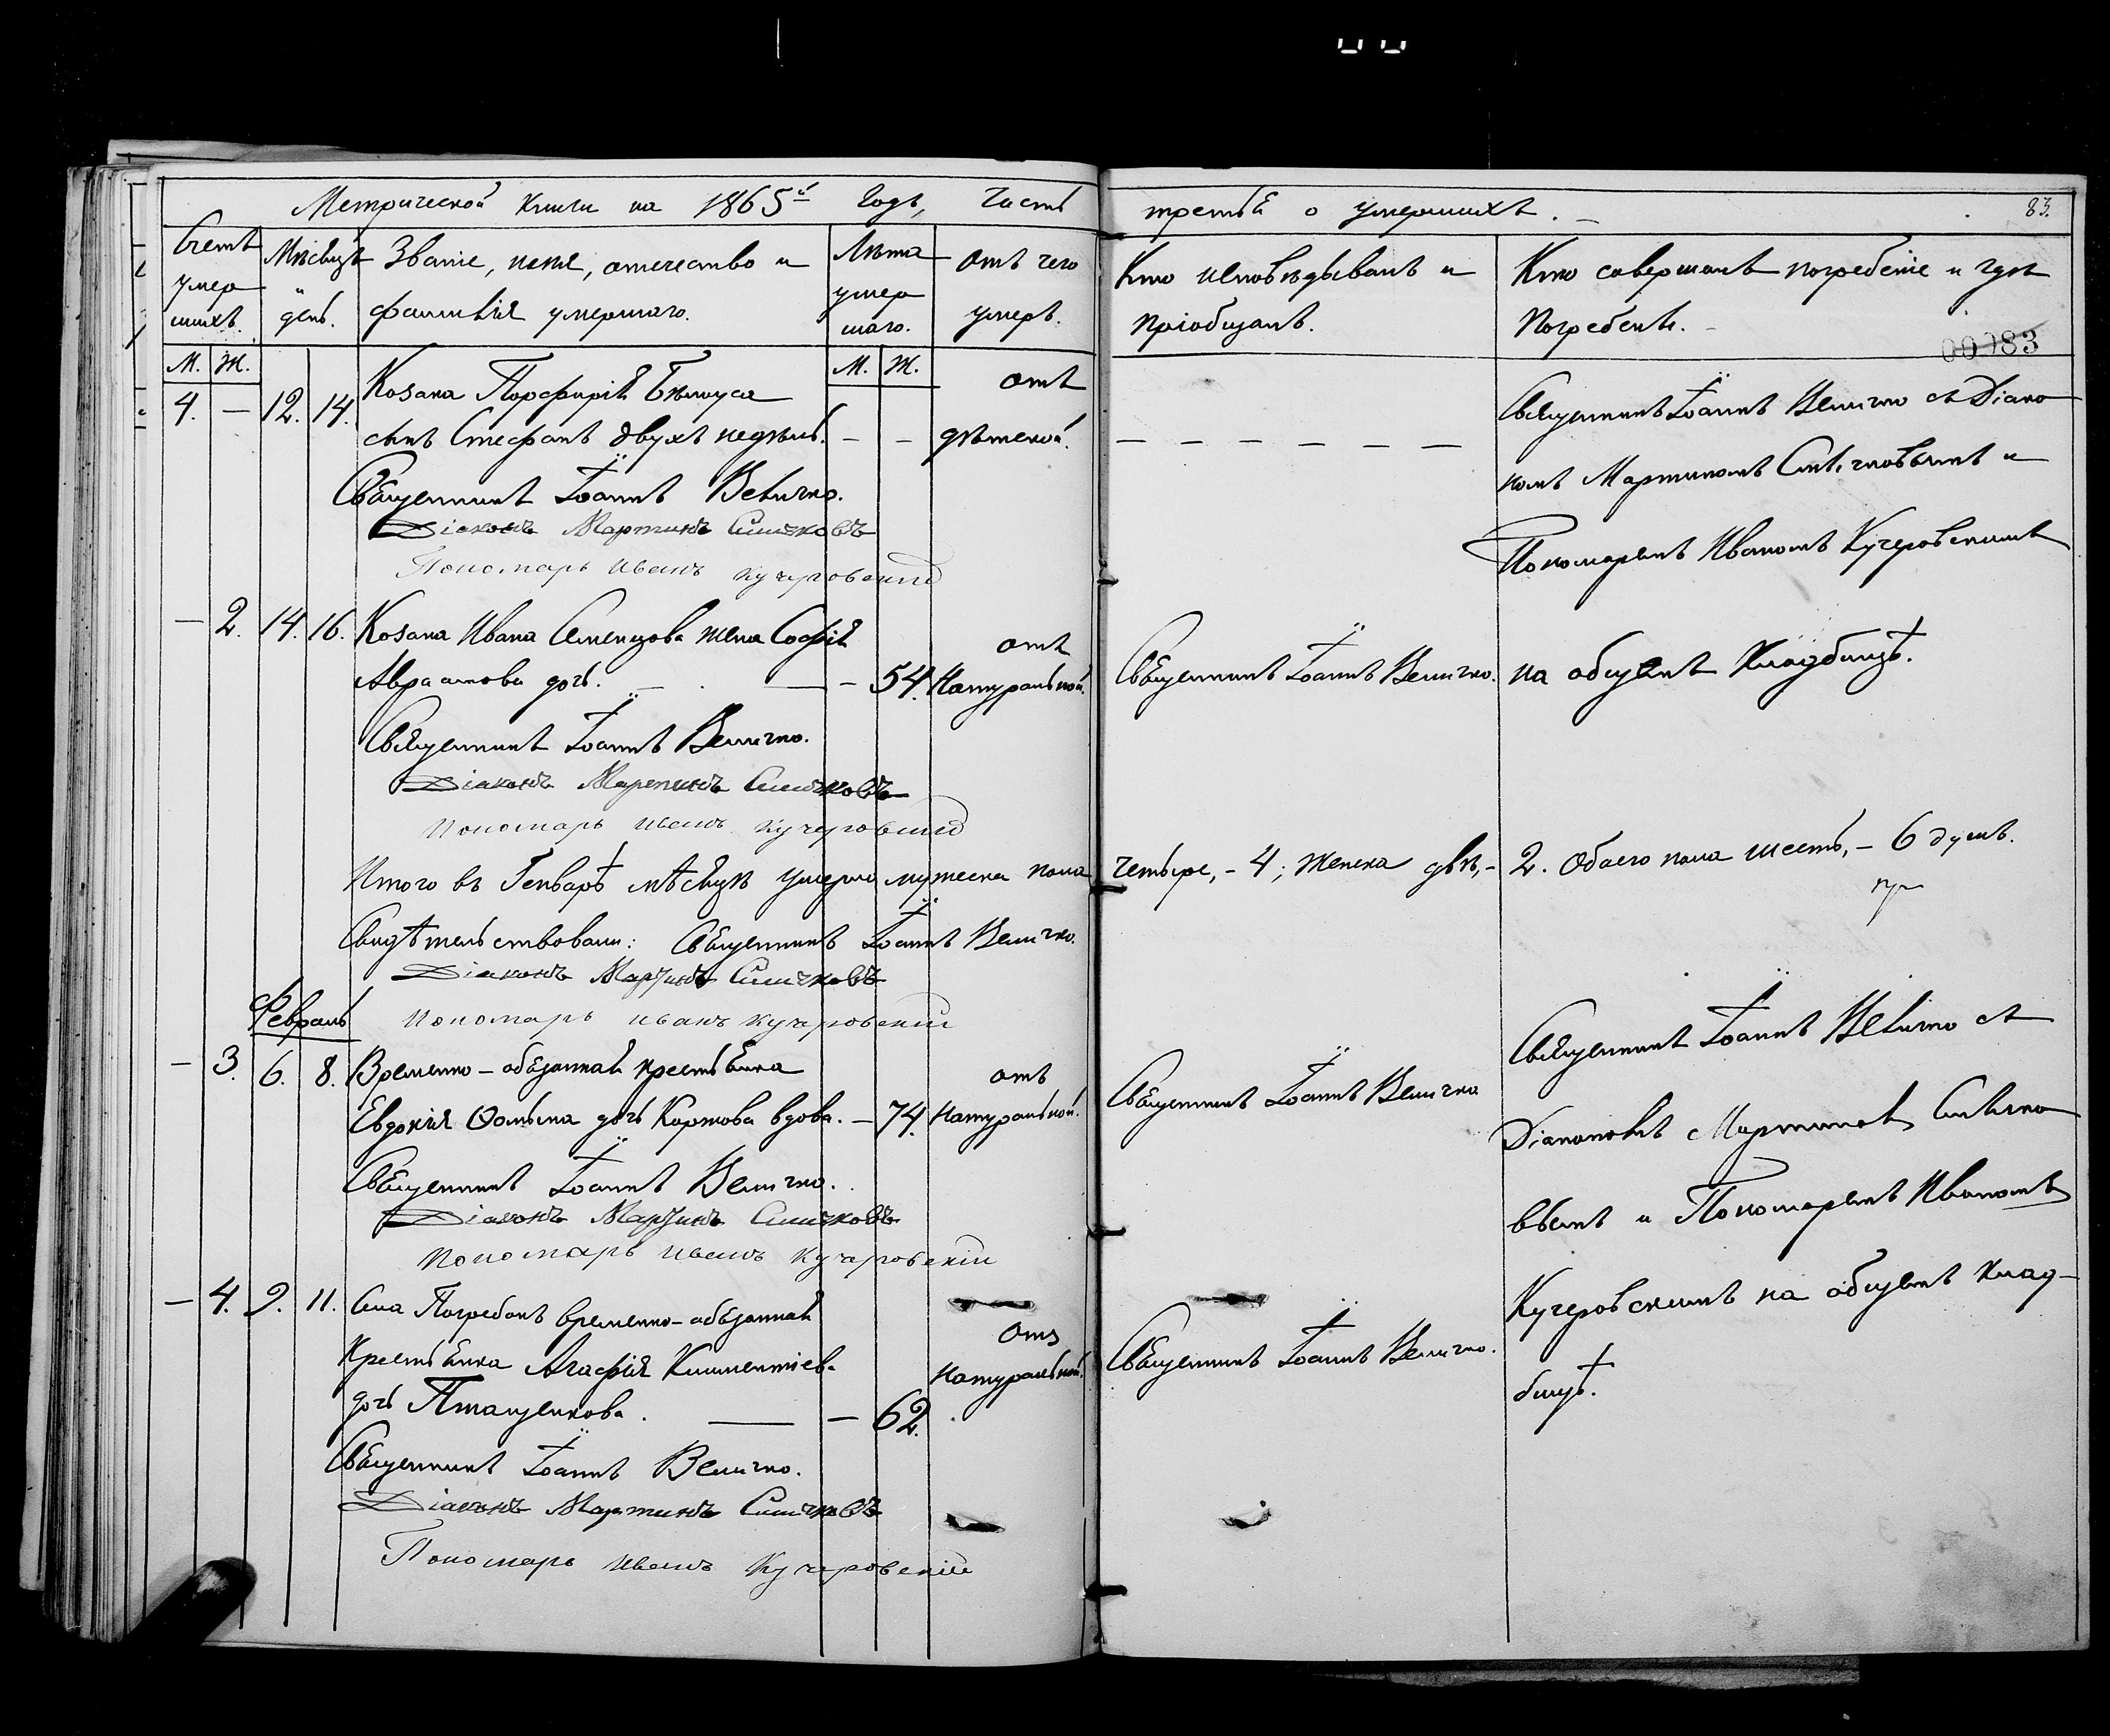 Метрической книги на 1865й Годъ, Часть третья о умершихъ.
83.
Счетъ умершихъ.
Мѣсяцъ и день.
Званіе, имя, отечество и фамилія умершаго.
Лѣта умершаго.
Отъ чего умеръ.
Кто исповѣдывалъ и пріобщалъ.
Кто совершалъ погребеніе и гдѣ погребенъ.
00083
М. Ж.
М. Ж.
4. – 12. 14. Козака Порфирія
сынъ Стефанъ двухъ недѣль. – –
отъ
дѣтской.
Священникъ Іоаннъ Величко съ Діако
номъ Мартиномъ Силичковымъ и
Пономаремъ Иваномъ Кучеровскимъ
на общемъ Кладбищѣ.
Священникъ Іоаннъ Величко.
Діаконъ Мартинъ Силичковъ
Пономарь Иванъ Кучеровскій
– 2. 14. 16. Козака Ивана Семенцова жена Софія
Авраамова дочь. – 54.
отъ
Натуральной.
Священникъ Іоаннъ Величко.
Священникъ Іоаннъ Величко.
Діаконъ Мартинъ Силичковъ
Пономарь Иванъ Кучеровскій
Итого въ Генварѣ мѣсяцѣ умерло мужеска пола четыре, – 4; женска двѣ, – 2. Обоего пола шесть, – 6 душъ.
Свидѣтельствовали: Священникъ Іоаннъ Величко.
Діаконъ Мартинъ Силичковъ
Пономарь Иванъ Кучеровскій
Февраль
– 3. 6. 8. Временно-обязанная крестьянка
Евдокія Ѳомина дочь Коржова вдова. – 74.
отъ
Натуральной.
Священникъ Іоаннъ Величко
Священникъ Іоаннъ Величко съ
Діакономъ Мартиномъ Силичко
вымъ и Пономаремъ Иваномъ
Кучеровскимъ на общемъ клад-
бищѣ.
Священникъ Іоаннъ Величко.
Діаконъ Мартинъ Силичковъ
Пономарь Иванъ Кучеровскій
– 4. 9. 11. временно-обязанная
Крестьянка Агафія Климентіев.
дочь Птащенкова. – 62.
Отъ
натуральной.
Священникъ Іоаннъ Величко.
Священникъ Іоаннъ Величко.
Діаконъ Мартинъ Силичковъ
Пономарь Иванъ Кучеровскій